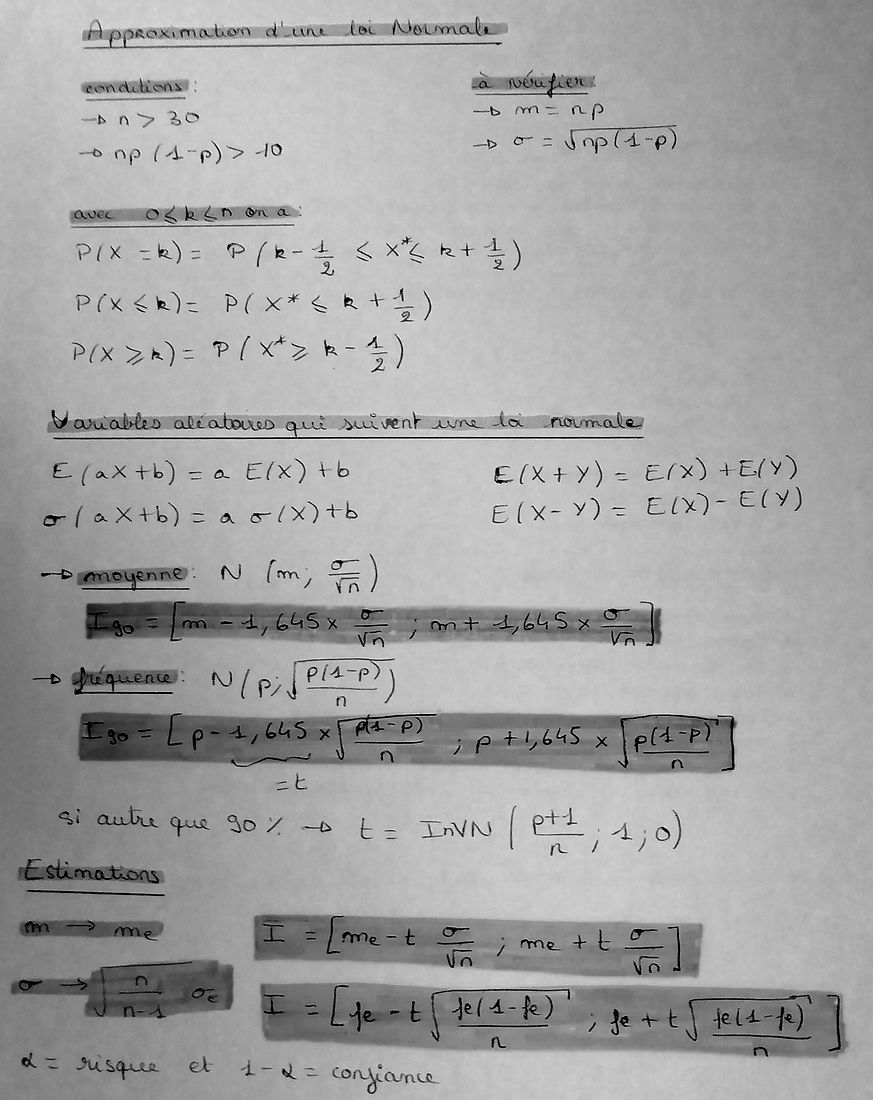 Approximation d'une loi Normale
conditions :
→ n > 30
→ np (1-p) > 10
à vérifier :
→ m = np
→ σ = √(np(1-p))
avec 0 ≤ k ≤ n on a :
P(X = k) = P(k - 1/2 ≤ X* ≤ k + 1/2)
P(X ≤ k) = P(X* ≤ k + 1/2)
P(X ≥ k) = P(X* ≥ k - 1/2)
Variables aléatoires qui suivent une loi normale
E(aX+b) = a E(X) + b
σ(aX+b) = a σ(X) + b
E(X+Y) = E(X) + E(Y)
E(X-Y) = E(X) - E(Y)
→ moyenne : N (m; σ/√n)
I90 = [m - 1,645 × σ/√n ; m + 1,645 × σ/√n]
→ fréquence : N(p; √(p(1-p)/n))
I90 = [p - 1,645 × √(p(1-p)/n) ; p + 1,645 × √(p(1-p)/n)]
= t
si autre que 90 % → t = InVN (p+1/n ; 1 ; 0)
Estimations
m → me
σ → √(n/(n-1)) σe
I = [me - t σ/√n ; me + t σ/√n]
I = [fe - t √(fe(1-fe)/n) ; fe + t √(fe(1-fe)/n)]
α = risque et 1-α = confiance